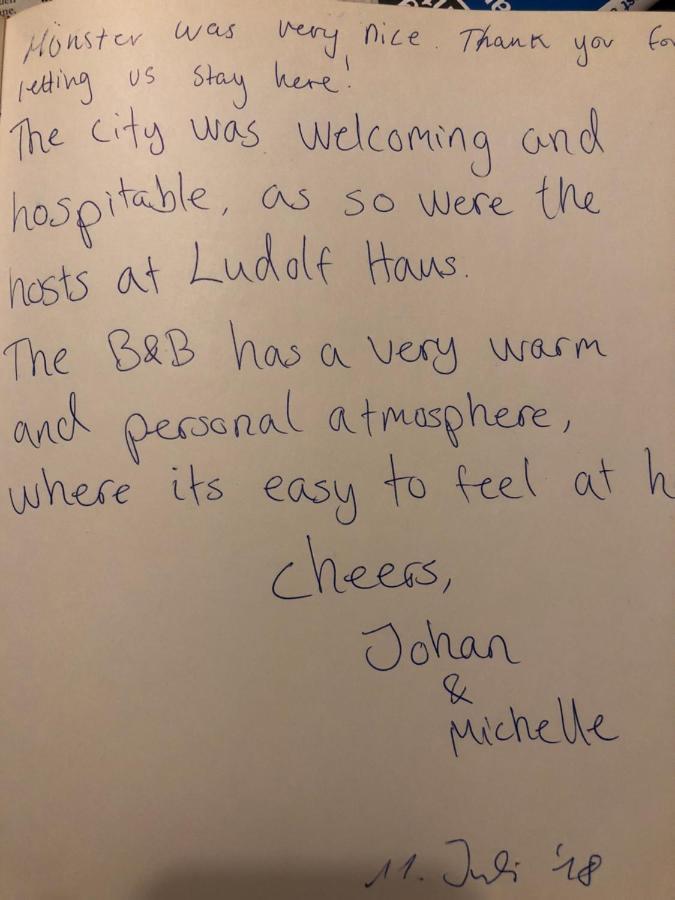 Münster was very nice. Thank you for
letting us stay here!
The city was welcoming and
hospitable, as so were the
hosts at Ludolf Haus.
The B&B has a very warm
and personal atmosphere,
where its easy to feel at h
Cheers,
Johan
&
Michelle
11. Juli '18